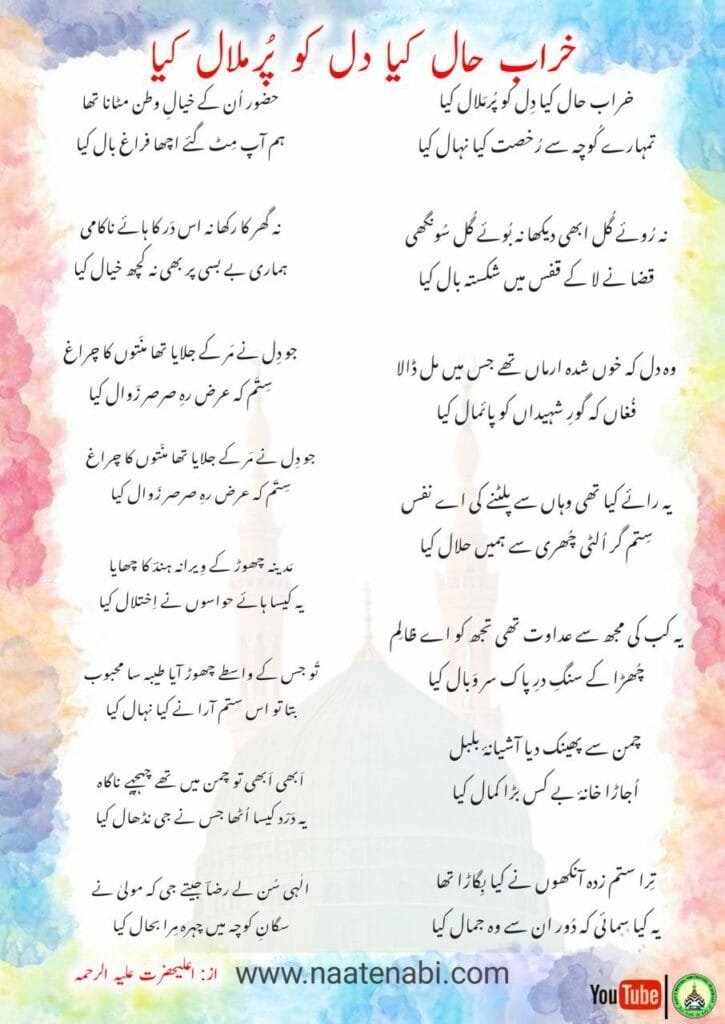 خراب حال کیا دل کو پُر ملال کیا
خراب حال کیا دِل کو پُرمَلال کیا
تمہارے کُوچہ سے رُخصت کیا نِہال کیا
نہ رُوئے گُل ابھی دیکھا نہ بُوئے گُل سُونگھی
قضا نے لا کے قفس میں شکستہ بال کیا
وہ دل کہ خوں شدہ ارماں تھے جس میں مل ڈالا
فُغاں کہ گورِ شہیداں کو پائمال کیا
یہ رائے کیا تھی وہاں سے پلٹنے کی اے نفس
سِتم گر اُلٹی چُھری سے ہمیں حلال کیا
یہ کب کی مجھ سے عداوت تھی تجھ کو اے ظالِم
چُھڑا کے سنگِ درِ پاک سر و بال کیا
چمن سے پھینک دیا آشیانۂ بلبل
اُجاڑا خانۂ بے کس بڑا کمال کیا
تِرا ستم زدہ آنکھوں نے کیا بِگاڑا تھا
یہ کیا سمائی کہ دُور ان سے وہ جمال کیا
حضور اُن کے خیالِ وطن مٹانا تھا
ہم آپ مِٹ گئے اچھا فراغِ بال کیا
نہ گھر کا رکھا نہ اس دَر کا ہائے ناکامی
ہماری بے بسی پر بھی نہ کُچھ خیال کیا
جو دِل نے مَر کے جلایا تھا منّتوں کا چراغ
سِتَم کہ عرض رہِ صرصرِ زَوال کیا
جو دِل نے مَر کے جلایا تھا منّتوں کا چراغ
سِتَم کہ عرض رہِ صرصرِ زَوال کیا
مَدینہ چھوڑ کے وِیرانہ ہند کا چھایا
یہ کیسا ہائے حواسوں نے اِختلال کیا
تُو جس کے واسطے چھوڑ آیا طیبہ سا محبوب
بتا تو اس ستم آرا نے کیا نہال کیا
اَبھی اَبھی تو چمن میں تھے چہچہے ناگاہ
یہ دَرْد کیسا اُٹھا جس نے جی نڈھال کیا
الٰہی سُن لے رضاؔ جیتے جی کہ مولیٰ نے
سگانِ کوچہ میں چہرہ مِرا بحال کیا
از: اعلیحضرت علیہ الرحمہ
www.naatenabi.com
YouTube